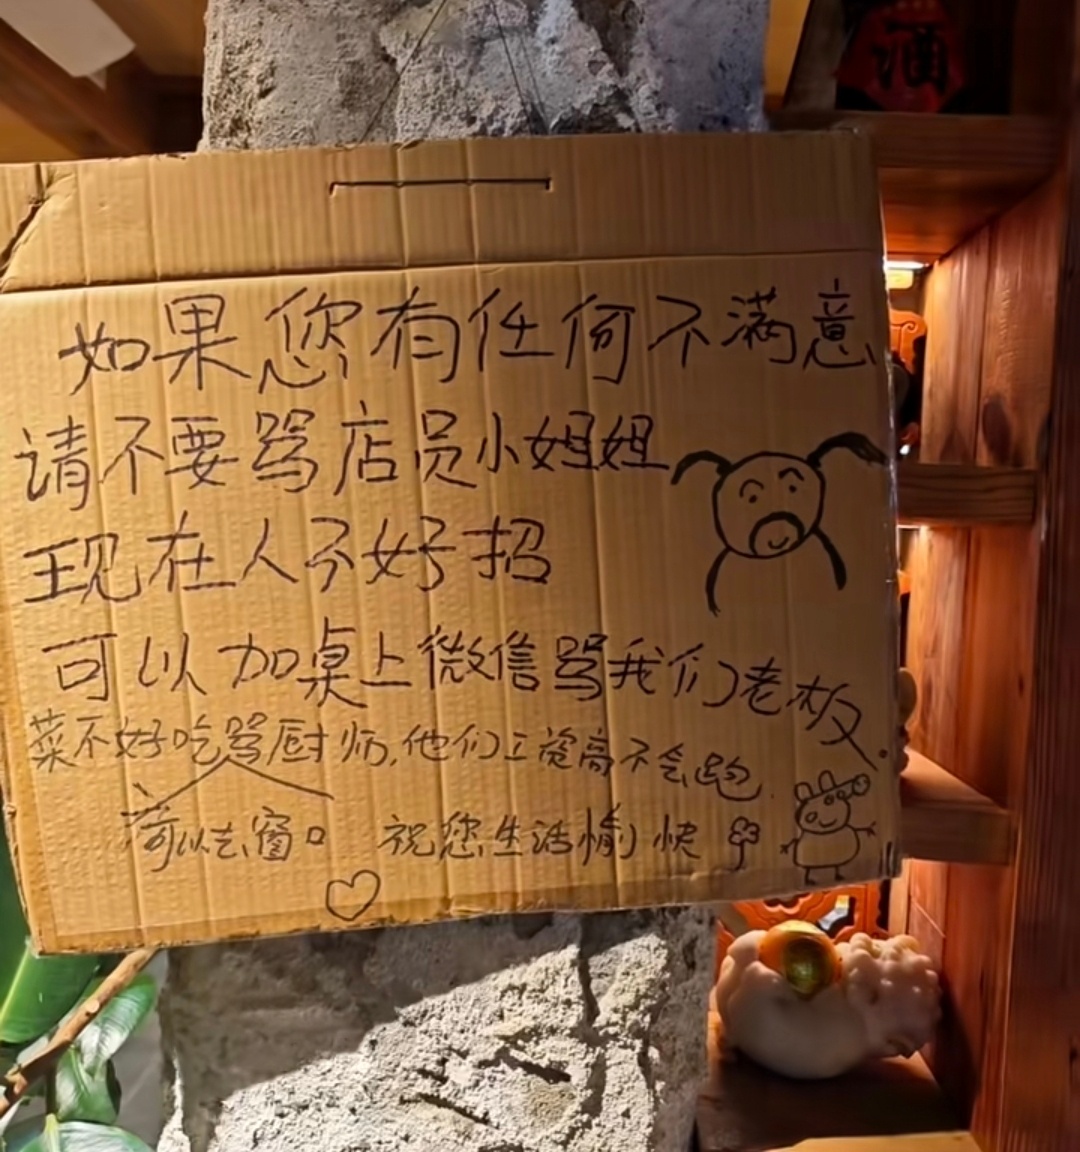 酒
如果您有任何不满意
请不要骂店员小姐姐
现在人不好招
可以加桌上微信骂我们老板.
菜不好吃骂厨师,他们工资高不会跑
可以去窗口 祝您生活愉快